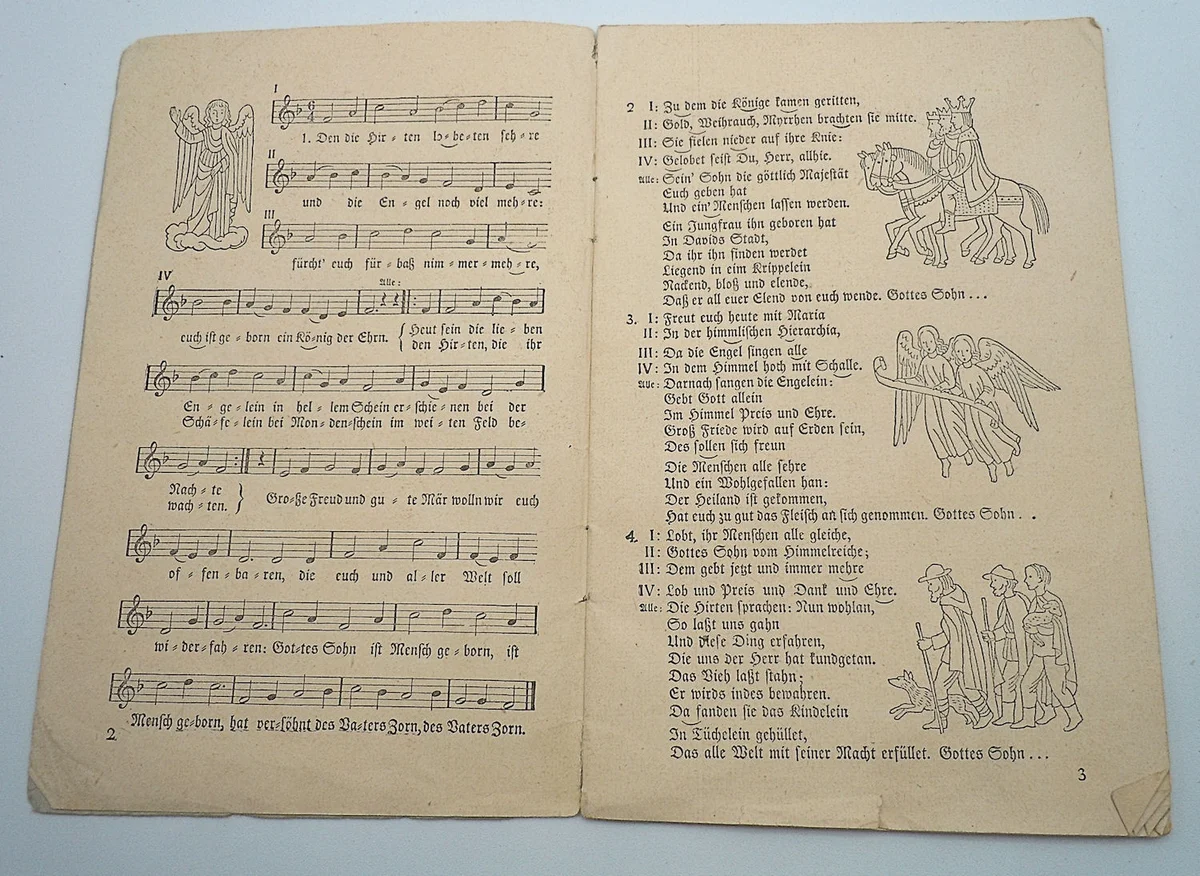 I
6 4
1. Den die Hir - ten lo-be-ten seh-re
II
und die En - gel noch viel meh-re:
III
fürcht' euch für-baß nim-mer-meh-re,
IV
Alle:
euch ist ge - born ein Kö-nig der Ehrn. { Heut sein die lie - ben
den Hir-ten, die ihr
En - ge-lein in hel-lem Schein er-schie-nen bei der
Schä-fe-lein bei Mon-den-schein im wei-ten Feld be-
Nach-te } Gro-ße Freud und gu - te Mär wolln wir euch
wach-ten.
of-fen-ba-ren, die euch und al-ler Welt soll
wi-der-fah-ren: Got-tes Sohn ist Mensch ge-born, ist
Mensch ge-born, hat ver-söhnt des Va-ters Zorn, des Vaters Zorn.
2
2 I: Zu dem die Könige kamen geritten,
II: Gold, Weihrauch, Myrrhen brachten sie mitte.
III: Sie fielen nieder auf ihre Knie:
IV: Gelobet seist Du, Herr, allhie.
Alle: Sein' Sohn die göttlich Majestät
Euch geben hat
Und ein' Menschen lassen werden.
Ein Jungfrau ihn geboren hat
In Davids Stadt,
Da ihr ihn finden werdet
Liegend in eim Krippelein
Nackend, bloß und elende,
Daß er all euer Elend von euch wende. Gottes Sohn ...
3. I: Freut euch heute mit Maria
II: In der himmlischen Hierarchia,
III: Da die Engel singen alle
IV: In dem Himmel hoch mit Schalle.
Alle: Darnach sangen die Engelein:
Gebt Gott allein
Im Himmel Preis und Ehre.
Groß Friede wird auf Erden sein,
Des sollen sich freun
Die Menschen alle sehre
Und ein Wohlgefallen han:
Der Heiland ist gekommen,
Hat euch zu gut das Fleisch an sich genommen. Gottes Sohn . .
4. I: Lobt, ihr Menschen alle gleiche,
II: Gottes Sohn vom Himmelreiche;
III: Dem gebt jetzt und immer mehre
IV: Lob und Preis und Dank und Ehre.
Alle: Die Hirten sprachen: Nun wohlan,
So laßt uns gahn
Und diese Ding erfahren,
Die uns der Herr hat kundgetan.
Das Vieh laßt stahn;
Er wirds indes bewahren.
Da fanden sie das Kindelein
In Tüchelein gehüllet,
Das alle Welt mit seiner Macht erfüllet. Gottes Sohn ...
3